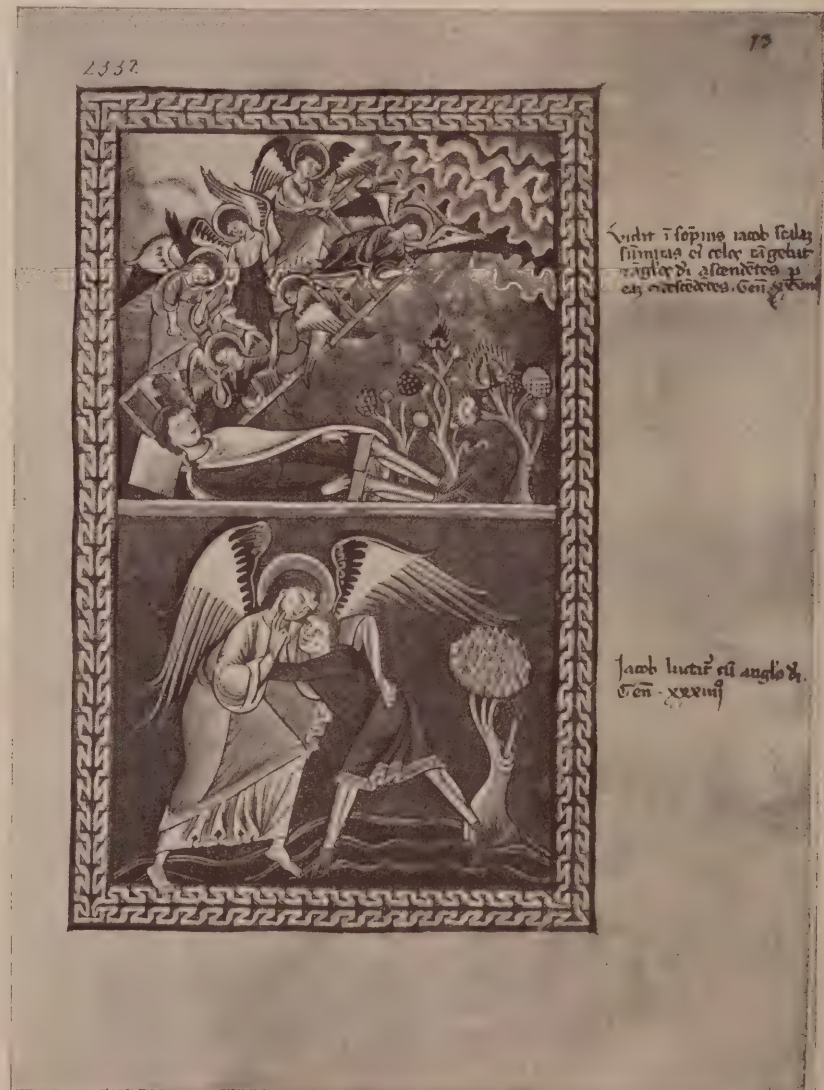 2337.
13
Vidit ī sōpnis iacob scalaz
sūmitas ei᷒ celoꝝ tāgebat
⁊ āglos dī ascendētes p
eaz ⁊ descēdētes. Gen̄.
Jacob luctat᷑ cū anglo dī.
Gen̄. xxxiiij